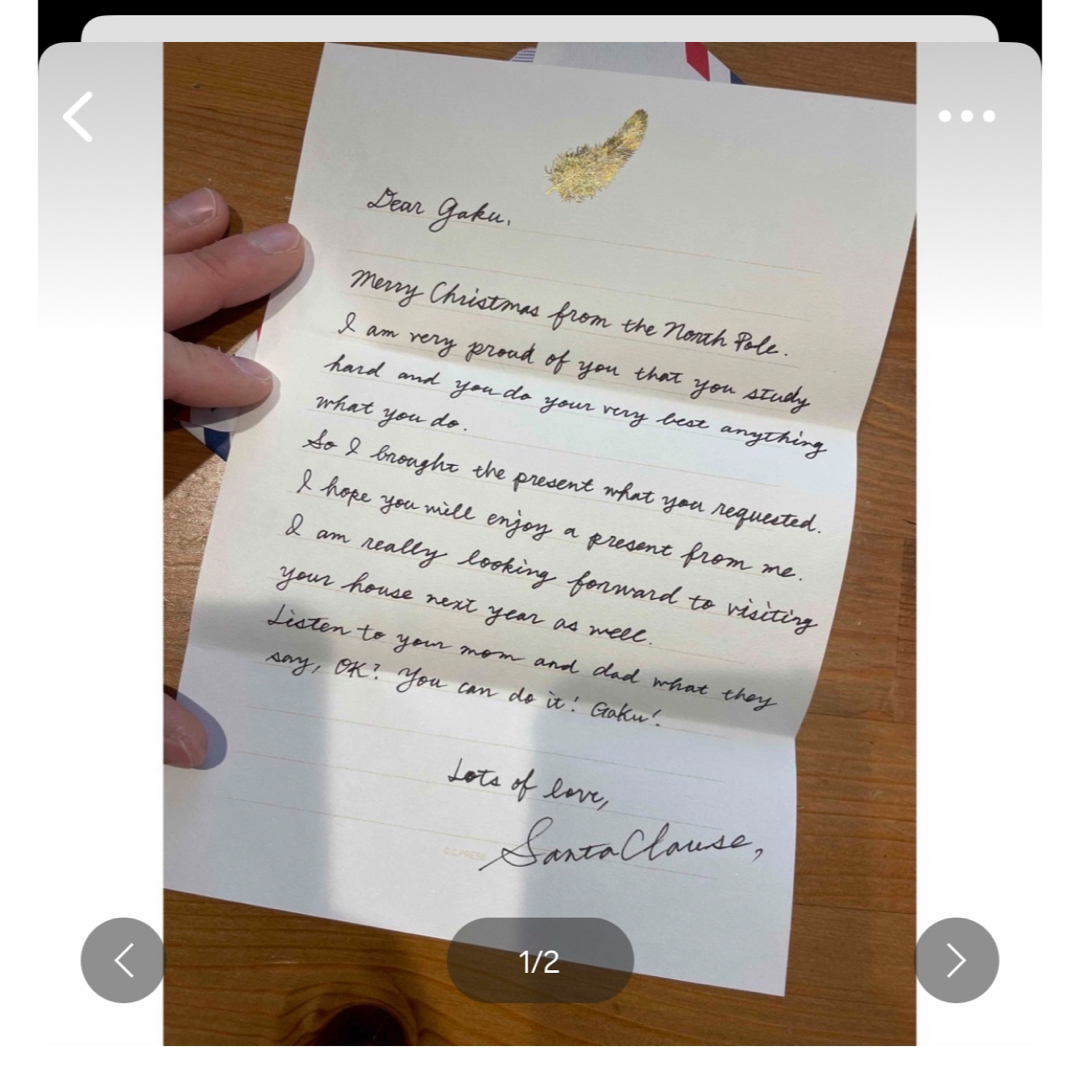 Dear Gaku,
Merry Christmas from the North Pole.
I am very proud of you that you study
hard and you do your very best anything
what you do.
So I brought the present what you requested.
I hope you will enjoy a present from me.
I am really looking forward to visiting
your house next year as well.
Listen to your mom and dad what they
say, OK? You can do it! Gaku!
Lots of love,
C.C.PRESS
Santa Clause,
1/2